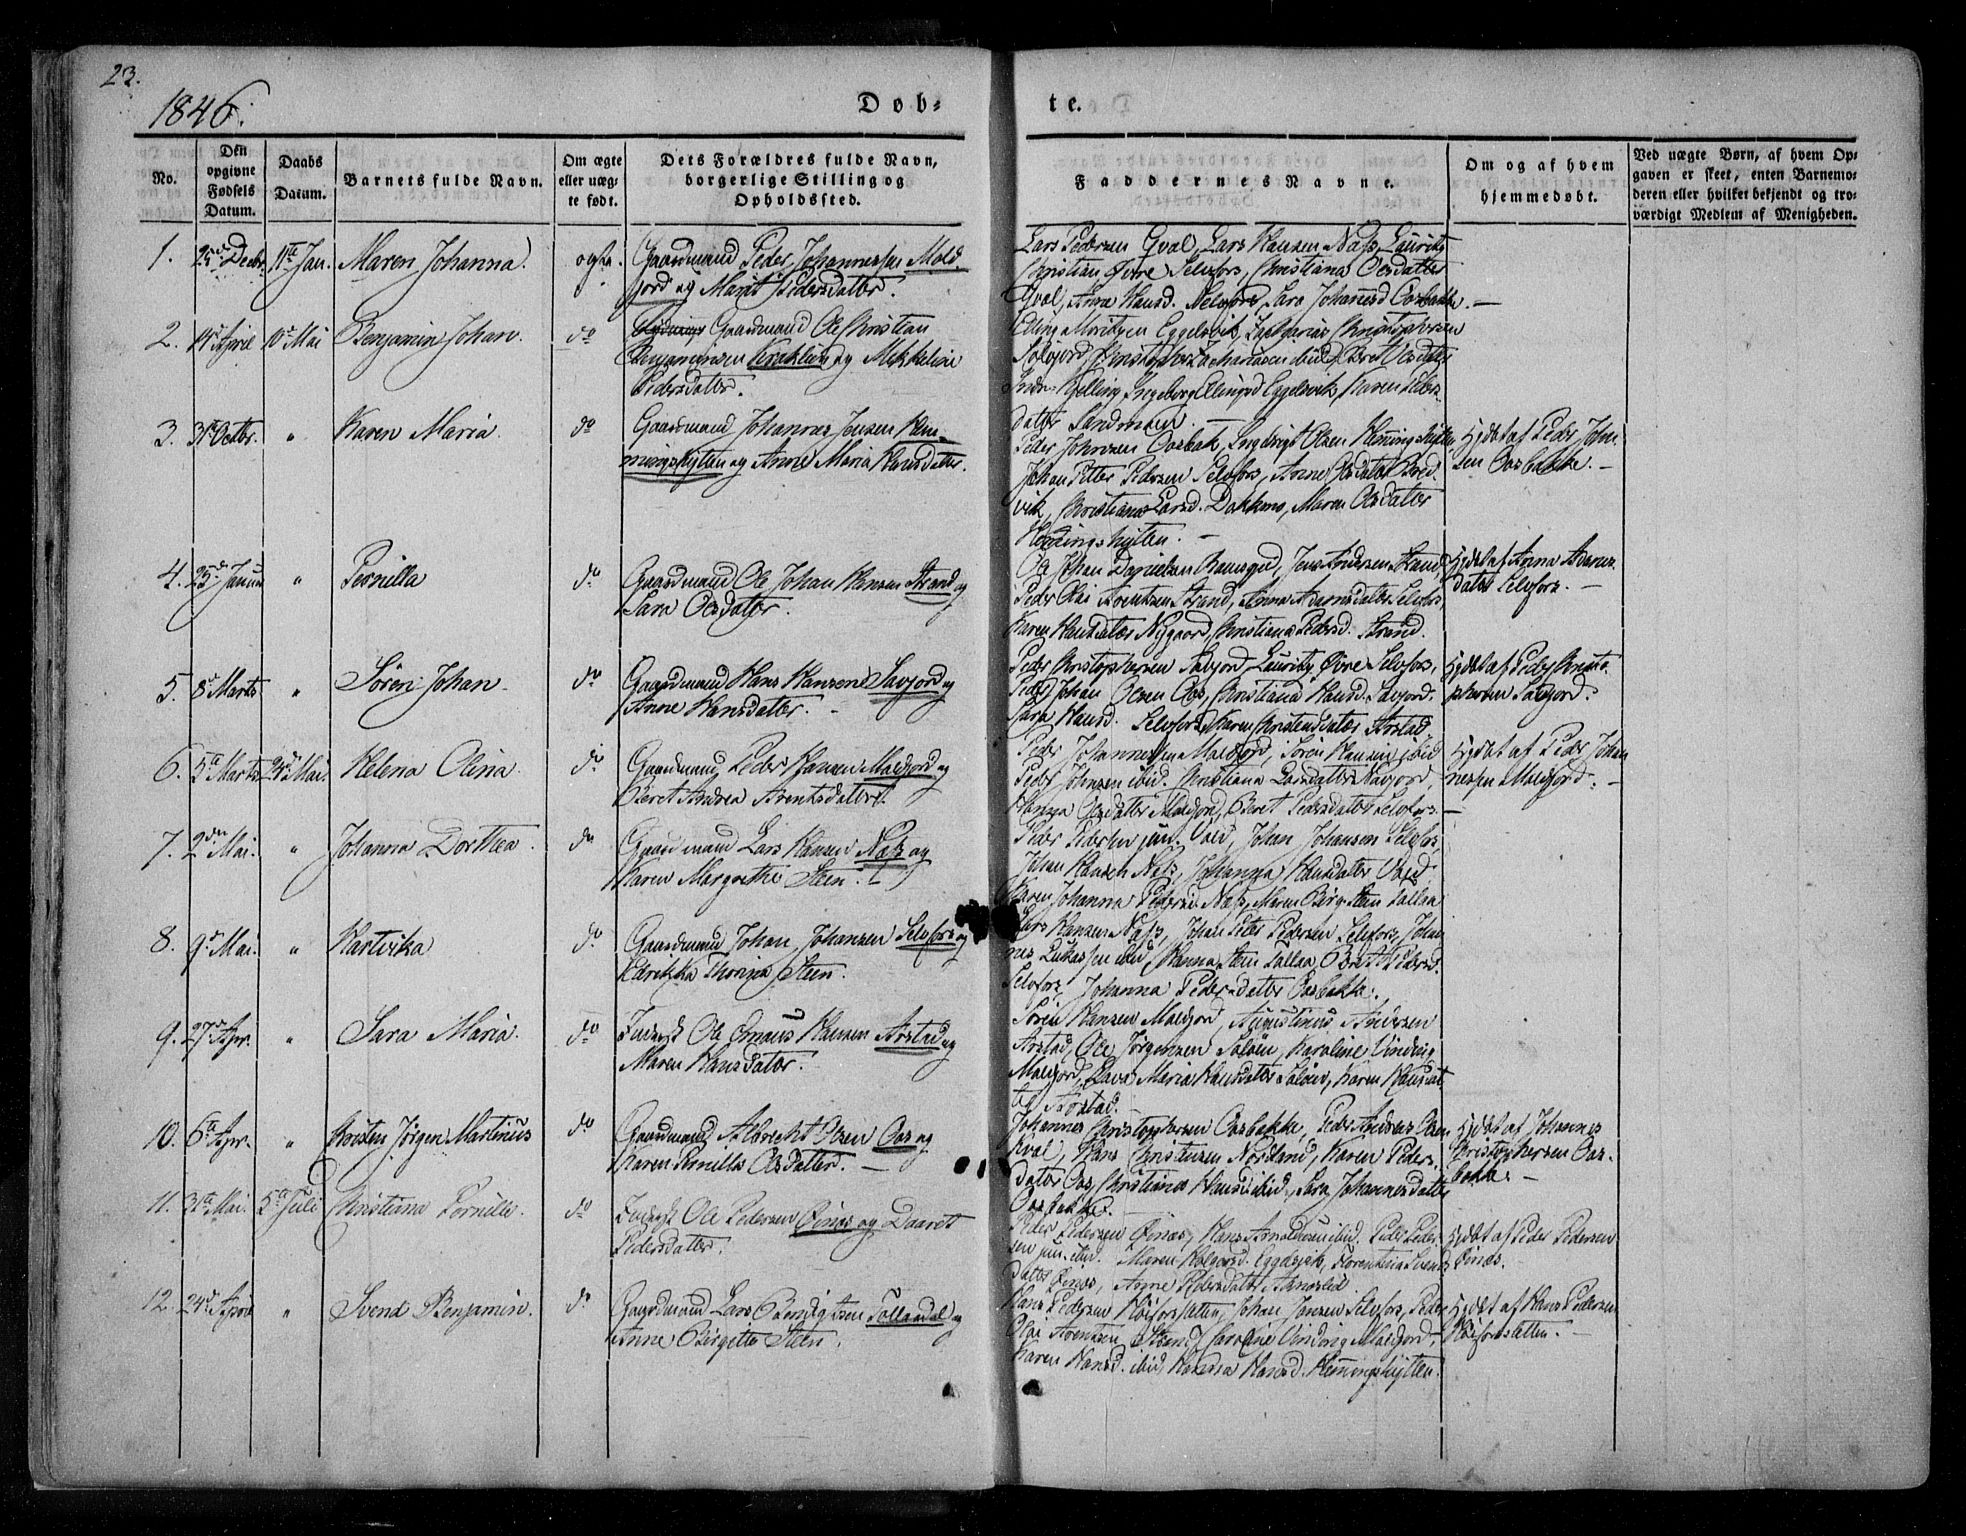 23.
1846.
Døb-
te.
No.
Den opgivne Fødsels Datum.
Daabs Datum.
Barnets fulde Navn.
Om ægte eller uæg-te født.
Dets Forældres fulde Navn, borgerlige Stilling og Opholdssted.
Faddernes Navne.
Om og af hvem hjemmedøbt.
Ved uægte Børn, af hvem Op-
gaven er skeet, enten Barnemo-
deren eller hvilket bekjendt og tro-
værdigt Medlem af Menigheden.
1. 25de Decbr. 11te Jan. Maren Johanna. ægte. Gaardmand Peder Johannessen Mold-
jord og Marit Pedersdatter.
Lars Pedersen Qval, Lars Hansen Næss, Lauritz
Christian Øvre Selvfors, Christiana Olsdatter
Qval, Anne Hansd. Selvfors, Sara Johannesd Oosbakke. —
2. 14de April 10de Mai Benjamin Johan. do Gaardmand Ole Christian
Benjaminsen og Mikkeline
Pedersdatter.
Elling Moritzen Eggesvik, Zacharias Christophersen
Solvjord, Christopher Zachariasen ibid, Beret Olsdatter
Ingeborg Ellingsd Eggesvik, Karen Peders-
datter Sandmoen. —
3. 31 Octbr. " Karen Maria. do Gaardmand Johannes Jensen Hem-
mingshytten og Anne Maria Hansdatter.
Peder Johnsen Oosbak, Ingebrigt Olsen Hemmingshytten,
Johan Petter Pedersen Selvfors, Anne Olsdatter Bred-
vik, Christiana Larsd. Dokkmo, Maren Olsdatter
Hemmingshytten. —
Hjdøbt af Peder John-
sen Oosbakke. —
4. 25de Januar " Pernilla do Gaardmand Ole Johan Hansen Strand og
Sara Olsdatter.
Ole Johan Danielsen, Jens Andersen Strand,
Peder Olai Arentzen Strand, Anna Adamsdatter Selvfors,
Karen Hansdatter Nygaard, Christiana Pedersd. Strand.
Hjdøbt af Anna Adams-
datter Selvfors. —
5. 8de Marts " Søren Johan. do Gaardmand Hans Hansen Savjord og
Anne Hansdatter. —
Peder Christophersen Savjord, Lauritz Øvre Selvfors,
Peder Johan Olsen Oos, Christiana Hansd. Savjord,
Sara Hansd. Selvfors, Karen Christensdatter Arstad.
Hjdøbt af Peder Christo-
phersen Savjord.
6. 5te Marts 24de Mai. Helena Olina. do Gaardmand Peder Hansen Maefjord og
Beret Andrea Arentsdatter.
Peder Johannessen Maefjord, Søren Hansen ibid
Peder Johnsen ibid. Christiana Larsdatter Navjord,
Hanna Olsdatter Maefjord, Beret Pedersdatter Selvfors. —
Hjdøbt af Peder Johan-
nessen Maefjord. —
7. 2den Mai. " Johanna Dorthea. do Gaardmand Lars Hansen Næss og
Karen Margrethe Steen.
Peder Pedersen jun. Vald, Johan Johansen Selvfors,
Johan Hansen Næss, Johanna Hansdatter Vald,
Karen Johanna Pedersen Næss, Maren Birg. Steen Tollaa
8. 9de Mai. " Hartvika do Gaardmand Johan Johansen Selvfors og
Thorina Steen.
Lars Hansen Næss, Johan Peter Pedersen Selvfors, Johan-
nes Lukassen ibid, Hanna Steen Tollaa, Beret Pedersd.
Selvfors, Johanna Pedersdatter Oosbakke.
9. 27de Apr. " Sara Maria. do Inderst Ole Emaus Hansen Arstad og
Maren Hansdatter.
Søren Hansen Maefjord, Augustinus Andersen
Arstad, Ole Jørgensen Soløen, Karoline Vinding
Maefjord, Lava Maria Hansdatter Soløen, Karen Hansdat-
ter Arstad.
10. 6te Apr. " Christen Jørgen Martinus do Gaardmand Albrecht Olsen Oos og
Karen Pernilla Olsdatter. —
Johannes Christophersen Oosbakke, Peder Andreas Olsen
Kval, Hans Christensen Nordland, Karen Peders-
datter Oos, Christiana Hansd ibid, Sara Johannesdatter
Oosbakke.
Hjdøbt af Johannes
Christophersen Oos-
bakke. —
11. 31te Mai. 5te Juli Christiana Pernille. do Inderst Ole Pedersen Øinæs og Daaret
Pedersdatter.
Peder Pedersen Øinæs, Hans Arnoldsen ibid. Peder Peder-
sen jun. ibid. Maren Holgersd. Eggesvik, Florentina Svends-
datter Øinæs, Anne Pedersdatter Arnestad
Hjdøbt af Peder Pedersen
Øinæs.
12. 24de April " Svend Benjamin. do Gaardmand Lars Bendigtsen Tollaadal og
Anne Birgitte Steen.
Hans Pedersen Høiforsletten, Johan Jansen Selvfors, Peder
Olai Arentzen Strand, Caroline Vinding Maefjord,
Karen Hansd. ibid, Hansd. Hemmingshytten.
Hjdøbt af Hans Pedersen
Høiforsletten. —